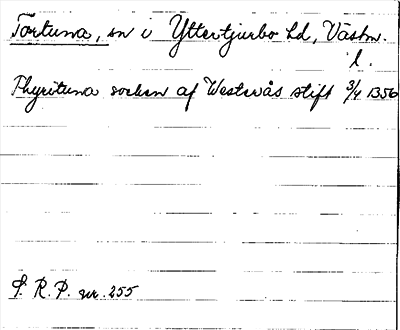 Tortuna, sn i Yttertjurbo hd, Västm.
l.
Thyrituna sockn af Westerås stift 3/4 1356
S. R. P. nr. 255